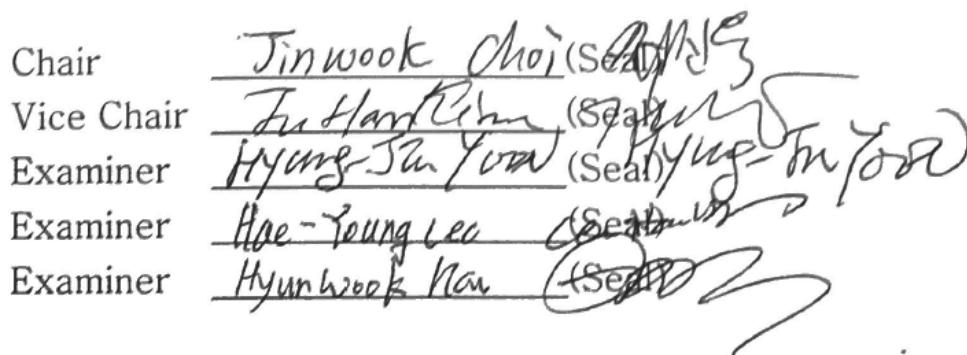 Chair Jinwook Choi (Seal)
Vice Chair Ju Han Kim (Seal)
Examiner Hyung-Jin Yoon (Seal) Hyung-Jin Yoon
Examiner Hae-Young Lee (Seal)
Examiner Hyunwook Han (Seal)